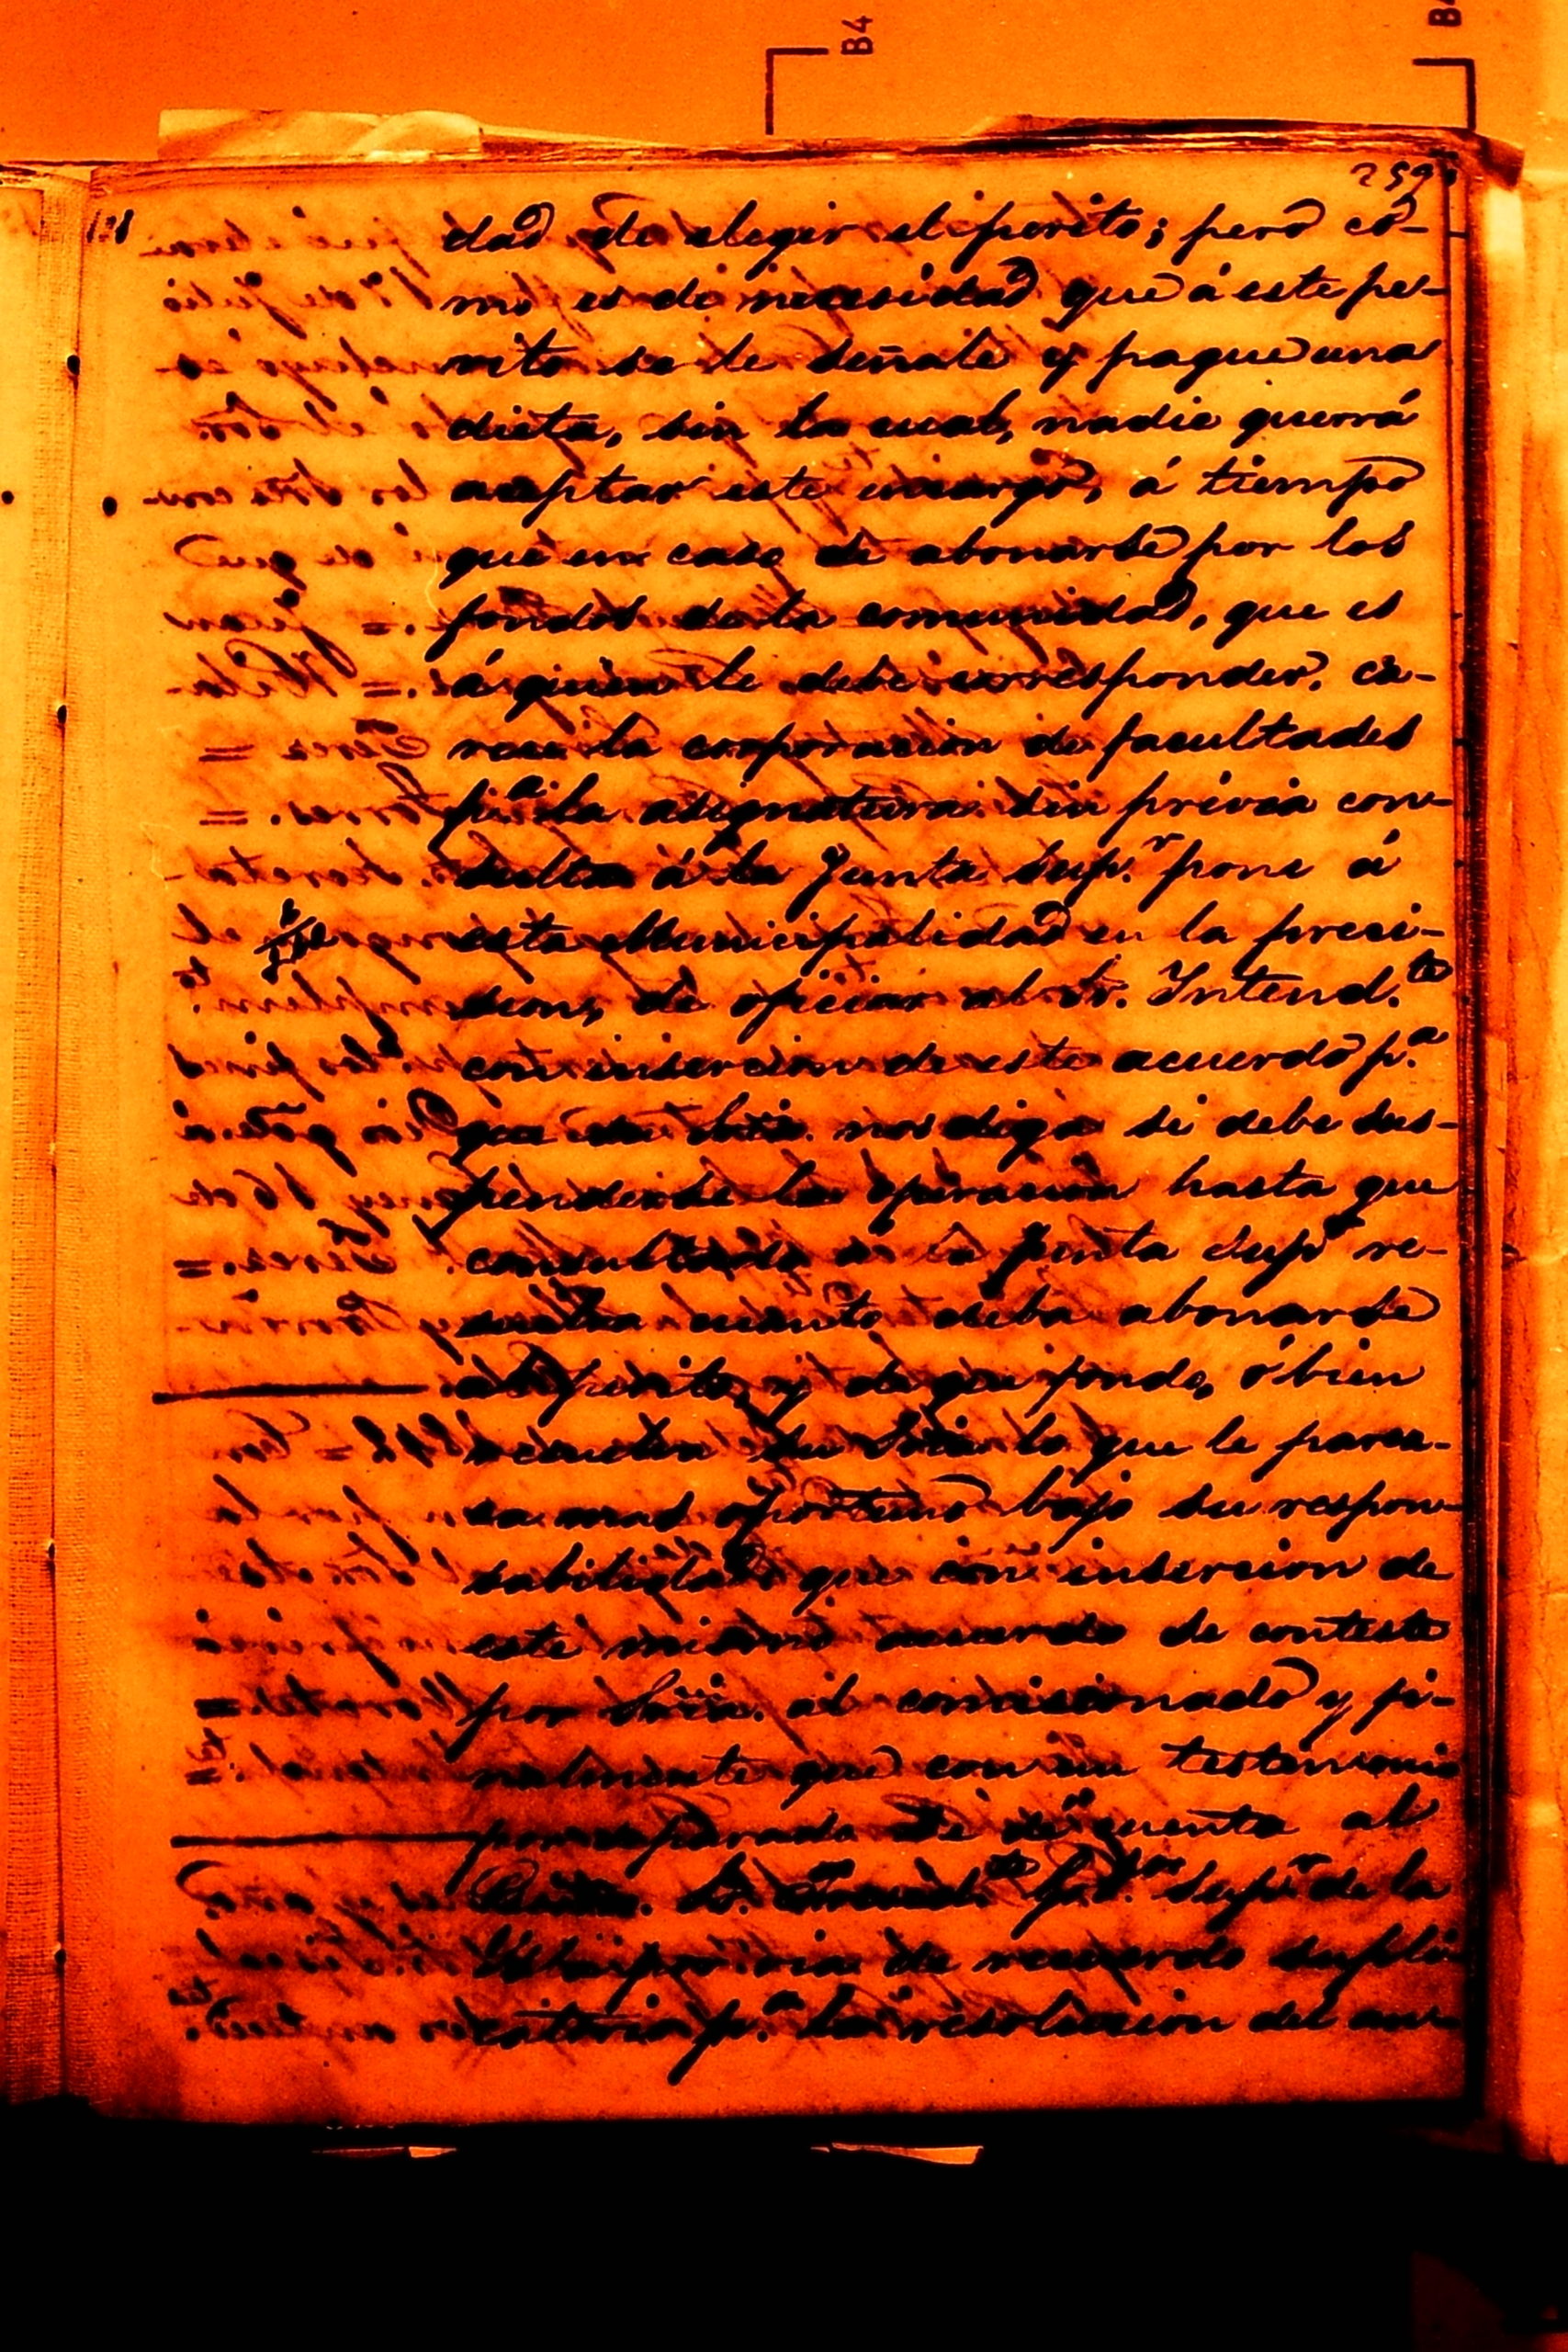 B4
B4
259
128
dad de elegir el perito; pero co-
mo es de necesidad que á este pe-
rito se le señale y pague una
dieta, sin la cual, nadie querrá
aceptar este encargo, á tiempo
que en caso de abonarse por los
fondos de la comunidad, que es
á quien le debe corresponder, ca-
rece la corporacion de facultades
p.a la asignatura sin prévia con-
sulta á la Junta Sup.r pone á
esta Municipalidad en la preci-
sion, de oficiar al Sr. Intend.te
con insercion de este acuerdo p.a
que su Sria. nos diga si debe sus-
penderse la operacion hasta que
consultado á la Junta Sup.r re-
suelva cuanto deba abonarse
al perito, y de que fondo, ó bien
acuerda su Sria lo que le parez-
ca mas oportuno bajo su respon-
sabilidad que con insercion de
este mismo acuerdo se conteste
por Sria. al comisionado y fi-
nalmente que con un testimonio
por separado se dé cuenta al
Sup.r de la
Isla por via de recuerdo supli-
catorio p.a la resolucion del